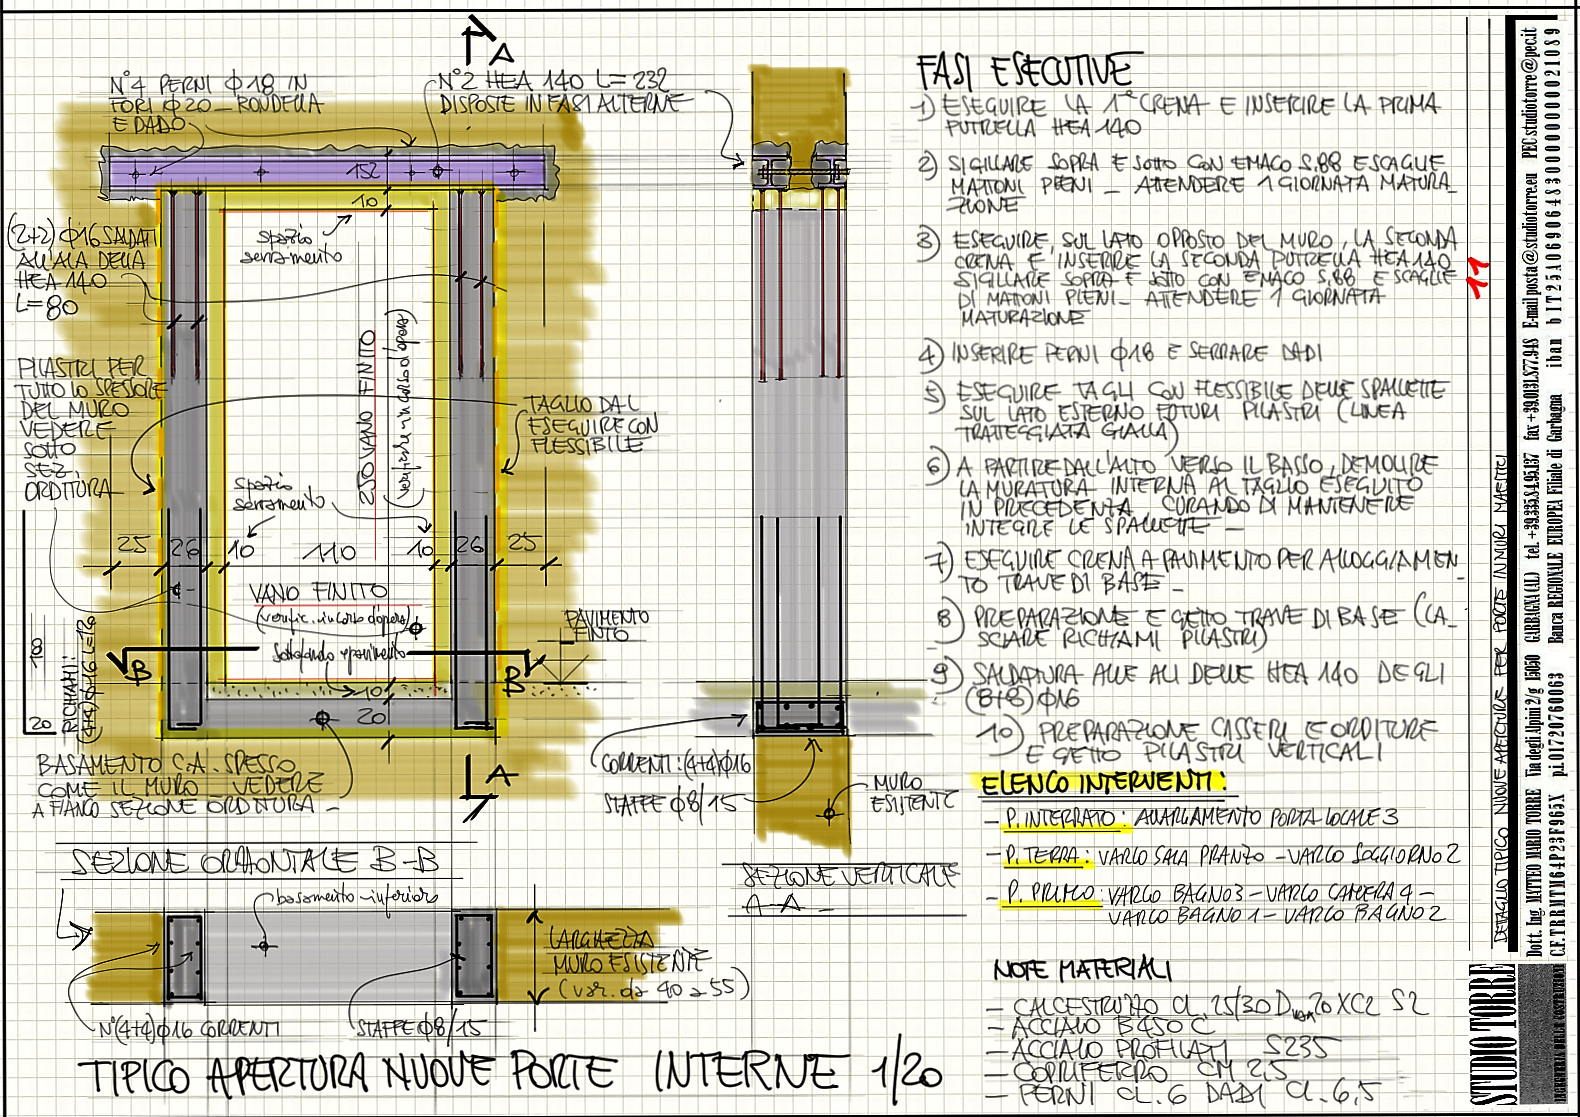 A
N°4 PERNI Φ18 IN
FORI Φ20 _ RONDELLA
E DADO
N°2 HEA 140 L=232
DISPOSTE IN FASI ALTERNE
152
10
spazio
serramento
(2+2) Φ16 SALDATI
ALL'ALA DELLA
HEA 140
L=80
PILASTRI PER
TUTTO LO SPESSORE
DEL MURO
VEDERE
SOTTO
SEZ.
ORDITURA
VANO FINITO
(verificare in corso d'opera)
TAGLIO DA
ESEGUIRE CON
FLESSIBILE
spazio
serramento
25 26 10 110 10 26 25
VANO FINITO
(verific. in corso d'opera)
PAVIMENTO
FINITO
B B
10
20
RICHIAMI:
(4+4)Φ16 L=120
20
BASAMENTO C.A. SPESSO
COME IL MURO _ VEDERE
A FIANCO SEZIONE ORDITURA _
A
CORRENTI: (4+4)Φ16
STAFFE Φ8/15
MURO
ESISTENTE
SEZIONE VERTICALE
A-A _
SEZIONE ORIZZONTALE B-B
basamento inferiore
LARGHEZZA
MURO ESISTENTE
(var. da 40 a 55)
N°(4+4)Φ16 CORRENTI
STAFFE Φ8/15
TIPICO APERTURA NUOVE PORTE INTERNE 1/20
FASI ESECUTIVE
1) ESEGUIRE LA 1° CRENA E INSERIRE LA PRIMA
PUTRELLA HEA 140
2) SIGILLARE SOPRA E SOTTO CON EMACO S.88 E SCAGLIE
MATTONI PIENI _ ATTENDERE 1 GIORNATA MATURA_
ZIONE
3) ESEGUIRE, SUL LATO OPPOSTO DEL MURO, LA SECONDA
CRENA E INSERIRE LA SECONDA PUTRELLA HEA 140
SIGILLARE SOPRA E SOTTO CON EMACO S.88 E SCAGLIE
DI MATTONI PIENI _ ATTENDERE 1 GIORNATA
MATURAZIONE
4) INSERIRE PERNI Φ18 E SERRARE DADI
5) ESEGUIRE TAGLI CON FLESSIBILE DELLE SPALLETTE
SUL LATO ESTERNO FUTURI PILASTRI (LINEA
TRATTEGGIATA GIALLA)
6) A PARTIRE DALL'ALTO VERSO IL BASSO, DEMOLIRE
LA MURATURA INTERNA AL TAGLIO ESEGUITO
IN PRECEDENZA, CURANDO DI MANTENERE
INTEGRE LE SPALLETTE _
7) ESEGUIRE CRENA A PAVIMENTO PER ALLOGGIAMEN_
TO TRAVE DI BASE _
8) PREPARAZIONE E GETTO TRAVE DI BASE (LA_
SCIARE RICHIAMI PILASTRI)
9) SALDATURA ALLE ALI DELLE HEA 140 DEGLI
(8+8) Φ16
10) PREPARAZIONE CASSERI E ORDITURE
E GETTO PILASTRI VERTICALI
ELENCO INTERVENTI:
- P. INTERRATO: ALLARGAMENTO PORTA LOCALE 3
- P. TERRA: VARCO SALA PRANZO - VARCO SOGGIORNO 2
- P. PRIMO: VARCO BAGNO 3 - VARCO CAMERA 4 -
VARCO BAGNO 1 - VARCO BAGNO 2
NOTE MATERIALI
- CALCESTRUZZO CL. 25/30 Dmax 20 XC2 S2
- ACCIAIO B450C
- ACCIAIO PROFILATI S235
- COPRIFERRO CM 2,5
- PERNI CL. 6 DADI CL. 6,5
11
DETTAGLIO TIPICO NUOVE APERTURE PER PORTE IN MURI MAESTRI
Dott. Ing. MATTEO MARIO TORRE Via degli Alpini 2/g 15050 GARBAGNA (AL) tel. +39.335.8.495.137 fax +39.0131.877.948 E-mail posta@studiotorre.eu PEC studiotorre@pec.it
C.F. TRRMTM64P23F965X p.i. 01720760063 Banca REGIONALE EUROPEA Filiale di Garbagna iban
STUDIO TORRE